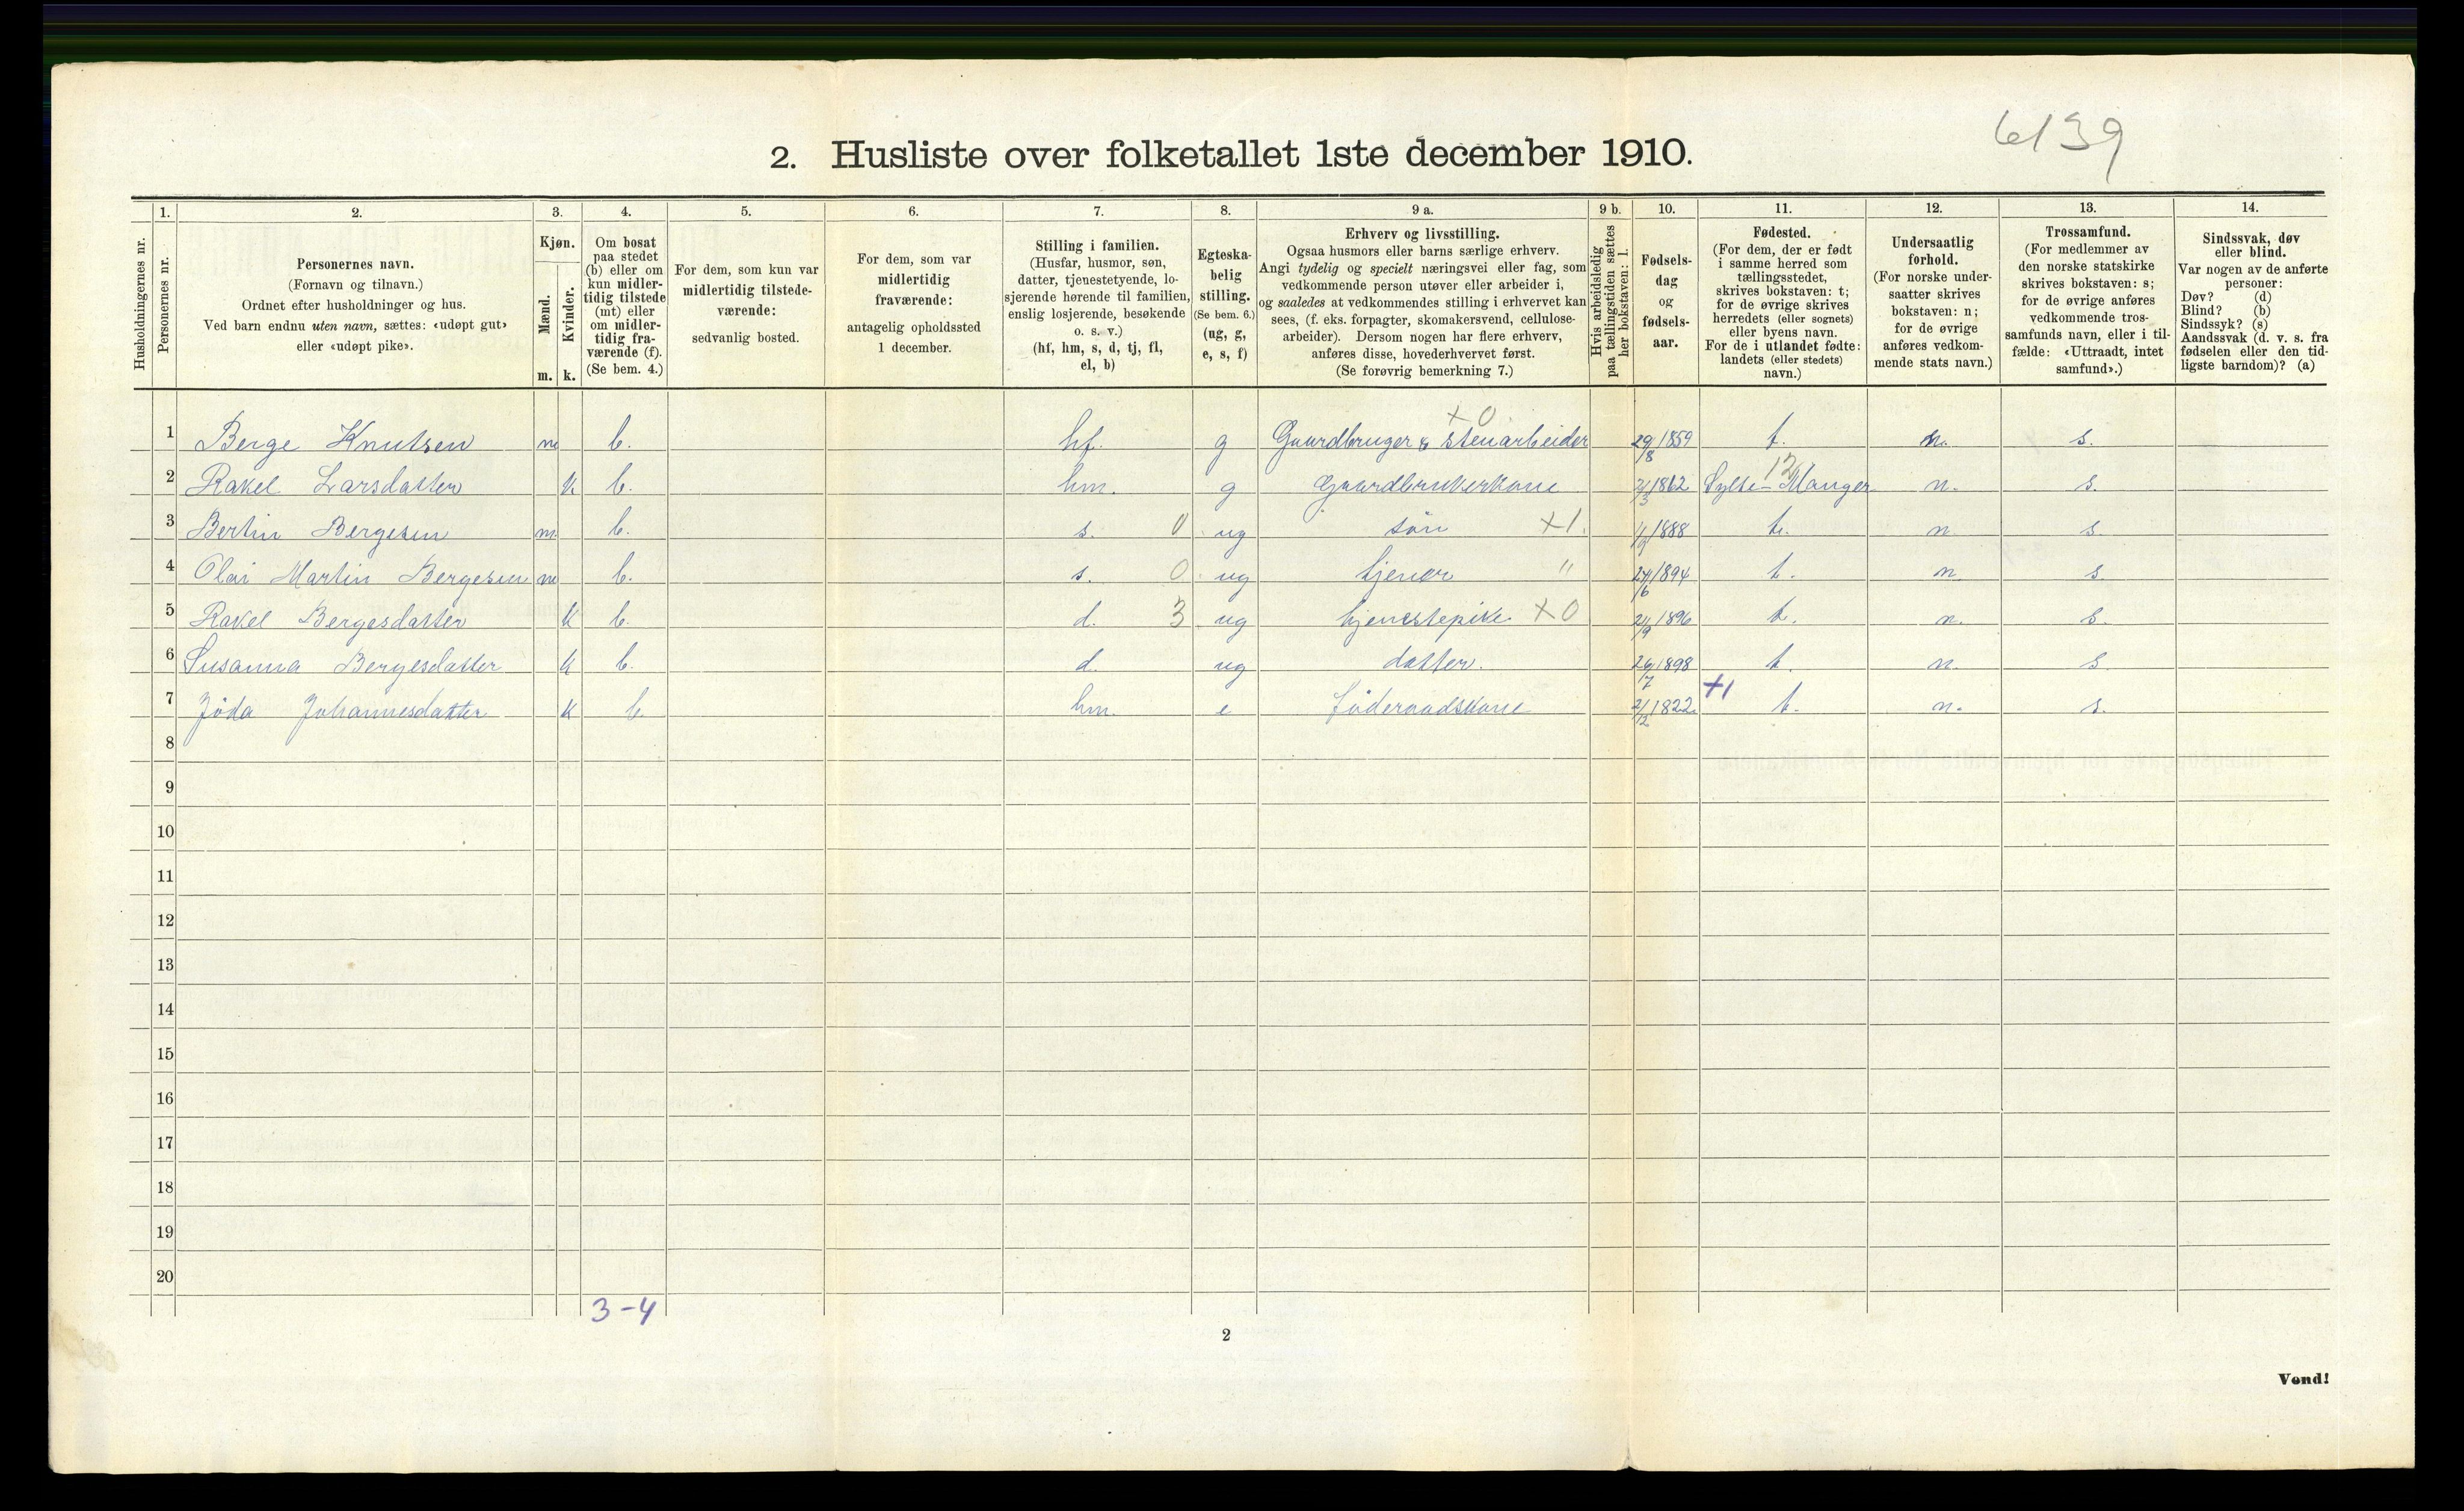 6139
2. Husliste over folketallet 1ste december 1910.
Husholdningernes nr.
1.
Personernes nr.
2.
Personernes navn.
(Fornavn og tilnavn.)
Ordnet efter husholdninger og hus.
Ved barn endnu uten navn, sættes: «udøpt gut»
eller «udøpt pike».
3.
Kjøn.
Mænd.
Kvinder.
m. k.
4.
Om bosat
paa stedet
(b) eller om
kun midler-
tidig tilstede
(mt) eller
om midler-
tidig fra-
værende (f).
(Se bem. 4.)
5.
For dem, som kun var
midlertidig tilstede-
værende:
sedvanlig bosted.
6.
For dem, som var
midlertidig
fraværende:
antagelig opholdssted
1 december.
7.
Stilling i familien.
(Husfar, husmor, søn,
datter, tjenestetyende, lo-
sjerende hørende til familien,
enslig losjerende, besøkende
o. s. v.)
(hf, hm, s, d, tj, fl,
el, b)
8.
Egteska-
belig
stilling.
(Se bem. 6.)
(ug, g,
e, s, f)
9 a.
Erhverv og livsstilling.
Ogsaa husmors eller barns særlige erhverv.
Angi tydelig og specielt næringsvei eller fag, som
vedkommende person utøver eller arbeider i,
og saaledes at vedkommendes stilling i erhvervet kan
sees, (f. eks. forpagter, skomakersvend, cellulose-
arbeider). Dersom nogen har flere erhverv,
anføres disse, hovederhvervet først.
(Se forøvrig bemerkning 7.)
9 b.
Hvis arbeidsledig
paa tællingstiden sættes
her bokstaven: l.
10.
Fødsels-
dag
og
fødsels-
aar.
11.
Fødested.
(For dem, der er født
i samme herred som
tællingsstedet,
skrives bokstaven: t;
for de øvrige skrives
herredets (eller sognets)
eller byens navn.
For de i utlandet fødte:
landets (eller stedets)
navn.)
12.
Undersaatlig
forhold.
(For norske under-
saatter skrives
bokstaven: n;
for de øvrige
anføres vedkom-
mende stats navn.)
13.
Trossamfund.
(For medlemmer av
den norske statskirke
skrives bokstaven: s;
for de øvrige anføres
vedkommende tros-
samfunds navn, eller i til-
fælde: «Uttraadt, intet
samfund».)
14.
Sindssvak, døv
eller blind.
Var nogen av de anførte
personer:
Døv? (d)
Blind? (b)
Sindssyk? (s)
Aandssvak (d. v. s. fra
fødselen eller den tid-
ligste barndom)? (a)
+0
1 Berge Knutsen m b. hf. g Gaardbruger & stenarbeider 29/8 1859 t. n. s.
12
2 Rakel Larsdatter k b. hm. g Gaardbrukerkone 2/3 1862 Sylte-Manger n. s.
3 Bertin Bergesen m. b. s. 0 ug søn +1. 1/9 1888 t. n. s.
4 Olai Martin Bergesen m b. s. 0 ug tjener " 24/6 1894 t. n s.
5 Rakel Bergesdatter k b. d. 3 ug tjenestepike +0 21/9 1896 t. n. s.
6 Susanna Bergesdatter k b. d. ug datter. 26/7 1898 t. n. s.
+1
7 Jöda Johannesdatter k b. hm. e föderaadskone 2/12 1822 t. n. s.
8
9
10
11
12
13
14
15
16
17
18
19
20
3-4
2
Vend!